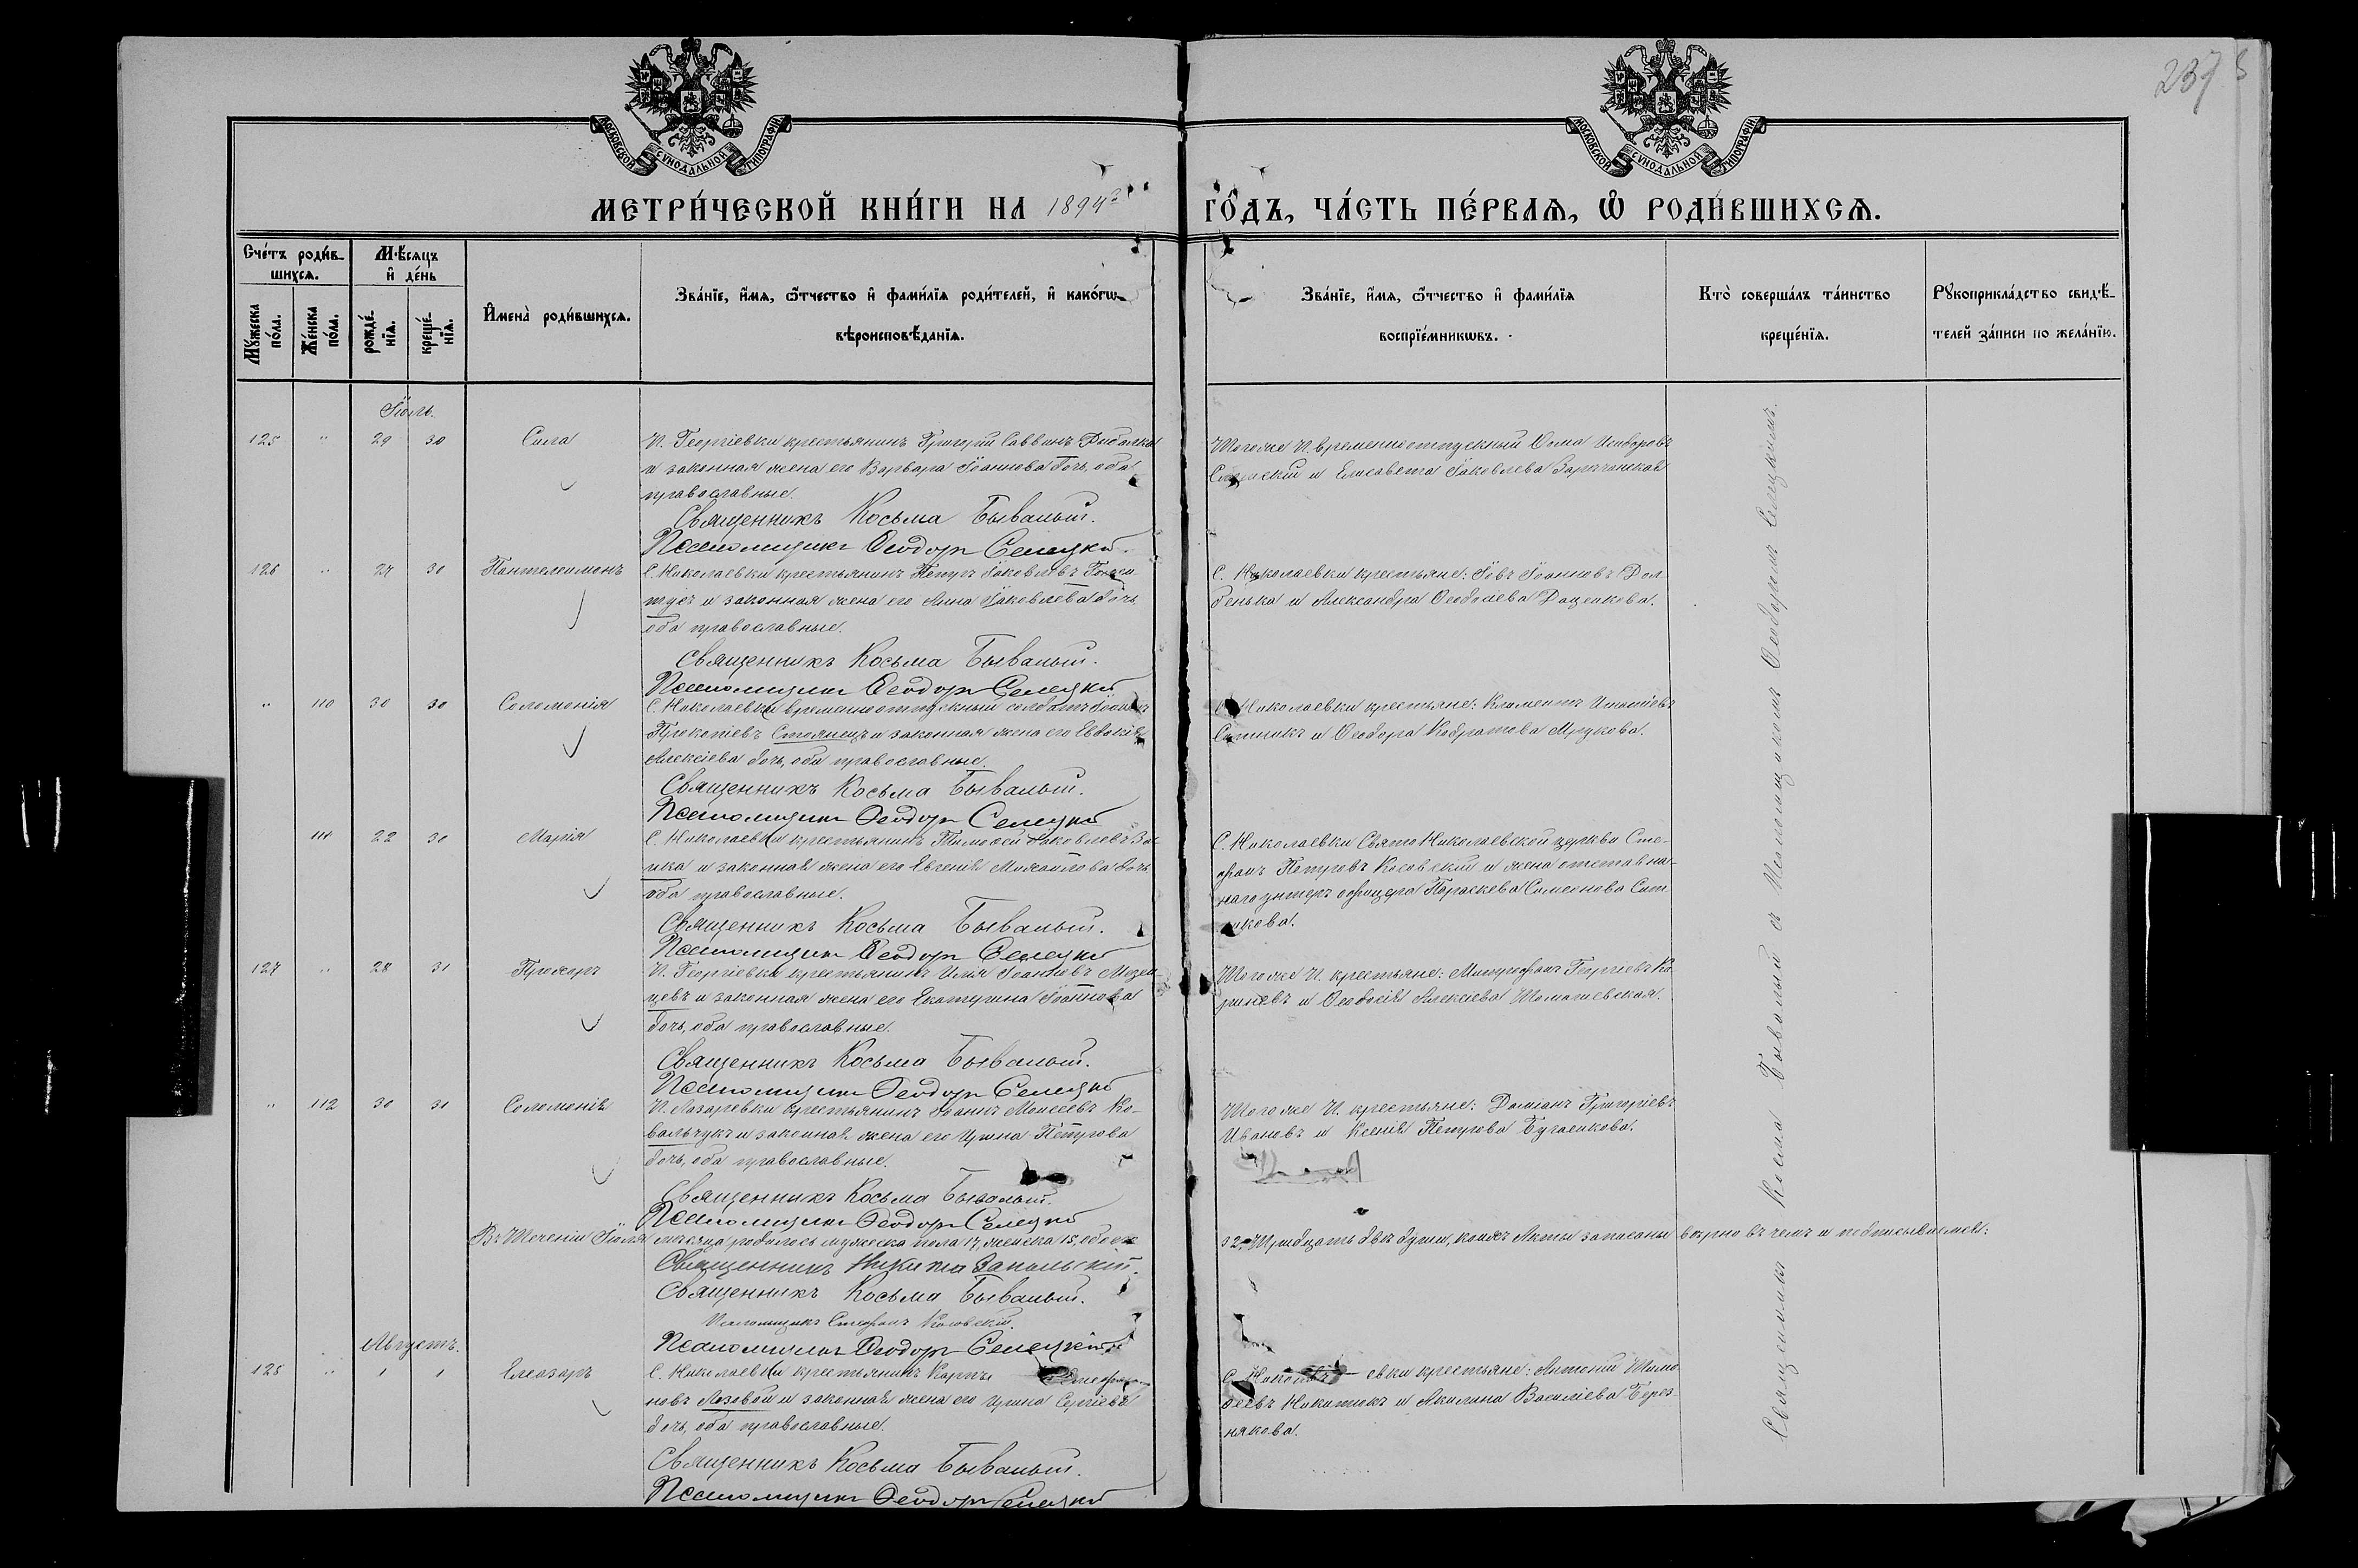 237
МОСКОВСКОЙ СѴНОДАЛЬНОЙ ТИПОГРАФІИ
МОСКОВСКОЙ СѴНОДАЛЬНОЙ ТИПОГРАФІИ
МЕТРИ́ЧЕСКОЙ КНИ́ГИ НА 1894 й ГО́ДЪ, ЧА́СТЬ ПЕ́РВАѦ, Ѡ҆ РОДИ́ВШИХСѦ.
Сче́тъ роди́в-
шихсѧ.
Мѣ́сѧцъ
и҆ де́нь
Мꙋ́жеска
по́ла.
Же́нска
по́ла.
рожде́-
нїѧ.
креще́-
нїѧ.
И҆мена̀ роди́вшихсѧ.
Зва́нїе, и҆́мѧ, ѻ҆́тчество и҆ фами́лїѧ роди́телей, и҆ како́гѡ
вѣроисповѣ́данїѧ.
Зва́нїе, и҆́мѧ, ѻ҆́тчество и҆ фами́лїѧ
воспрїе́мникѡвъ.
Кто̀ соверша́лъ та́инство
креще́нїѧ.
Рꙋкоприкла́дство свидѣ́-
телей за́писи по жела́нїю.
Іюль.
125 " 29 30 Сила
И. Георгіевки крестьянинъ Григорій Саввинъ
и законная жена его Варвара Іоаннова дочь, оба
православные.
Священникъ Косьма Бывалый.
Псаломщикъ Ѳеодоръ Селецкій.
Тогоже И. временноотпускный Ѳома Исидоровъ
и Елисавета Іаковлева
126 " 27 30 Пантелеимонъ
С. Николаевки крестьянинъ Петръ Іаковлевъ
и законная жена его Анна Іаковлева дочь,
оба православные.
Священникъ Косьма Бывалый.
Псаломщикъ Ѳеодоръ Селецкій
С. Николаевки крестьяне: Іовъ Іоанновъ Дол-
бенька и Александра Ѳеодосіева Даценкова.
" 110 30 30 Соломонія
С. Николаевки временноотпускный солдатъ Іоаннъ
Прокопіевъ Стоянецъ и законная жена его Евдокія
Алексіева дочь, оба православные.
Священникъ Косьма Бывалый.
Псаломщикъ Ѳеодоръ Селецкій
С. Николаевки крестьяне: Климентъ Игнатіевъ
Ситникъ и Ѳеодора Кодратова
111 22 30 Марія
С. Николаевки крестьянинъ Тимоѳей Іаковлевъ За-
ика и законная жена его Евгенія Михайлова дочь,
оба православные.
Священникъ Косьма Бывалый.
Псаломщикъ Ѳеодоръ Селецкій
С. Николаевки Свято Николаевской церкви Сте-
фанъ Петровъ Косовскій и жена отставна-
наго унтеръ офицера Параскева Симеонова Сит-
никова.
127 " 28 31 Прохоръ
И. Георгіевки крестьянинъ Илія Іоанновъ
и законная жена его Екатерина Іоаннова
дочь, оба православные.
Священникъ Косьма Бывалый.
Псаломщикъ Ѳеодоръ Селецкій
Тогоже И. крестьяне: Митрофанъ Георгіевъ
и Ѳеодосія Алексіева Томашевская.
" 112 30 31 Соломонія
И. Лазаревки крестьянинъ Іоаннъ Моисеевъ Ко-
вальчукъ и законная жена его Ирина Петрова
дочь, оба православные.
Священникъ Косьма Бывалый.
Псаломщикъ Ѳеодоръ Селецкій
Тогоже И. крестьяне: Даміанъ Григоріевъ
Ивановъ и Ксенія Петрова Бугаенкова.
Въ Теченіи Іюля мѣсяца родилось мужеска пола 17, женска 15, обоего 32 Тридцать двѣ души, коихъ Акты записаны вѣрно въ чемъ и подписываемся:
Священникъ Никита Запольскій.
Священникъ Косьма Бывалый.
Псаломщикъ Стефанъ Косовскій.
Псаломщикъ Ѳеодоръ Селецкій
Августъ.
128 " 1 1 Елеазаръ
С. Николаевки крестьянинъ Карпъ Стефа-
новъ Лозовой и законная жена его Ирина Сергіева
дочь, оба православные.
Священникъ Косьма Бывалый.
Псаломщикъ Ѳеодоръ Селецкій
С. Николаевки крестьяне: Антоній Тимо-
ѳеевъ Никитюкъ и Акилина Василіева Берез-
някова.
Священникъ Косьма Бывалый съ Псаломщикомъ Ѳеодоромъ Селецкимъ.